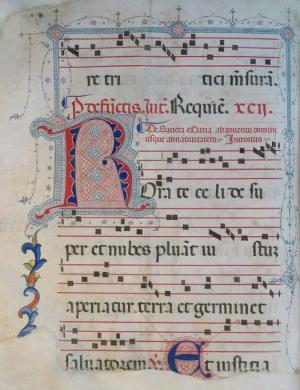 re tri tici mēsurā.
P defūctis. Int. Requiē. xcii.
De Sancta Maria ab adventu domini
usque ad nativitatem. Introitus.
Rora te ce li de su
per et nubes pluāt iu stuz
aperiatur terra et germinet
salvatorem. V. Et iusticia